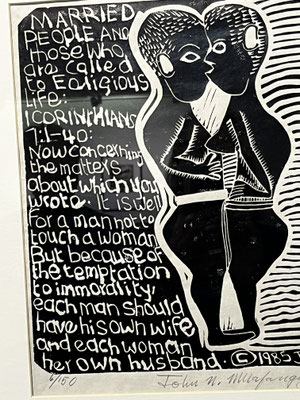 MARRIED
PEOPLE AND
those who
are called
to Ecligious
Life:
I CORINTHIANS
7:1-40:
Now concerning
the matters
about which you
wrote. It is well
for a man not to
touch a woman
But because of
the temptation
to immorality,
each man should
have his own wife
and each woman
her own husband. © 1985
6/150 John N.